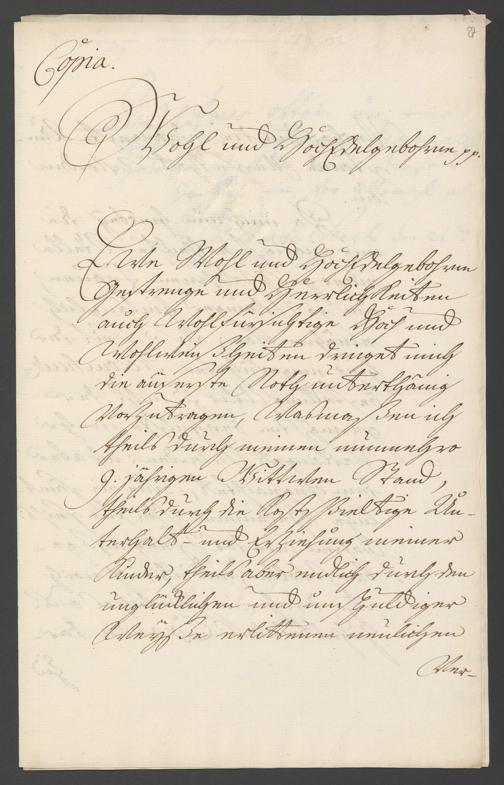 87
Copia.
Wohl und HochEdelgebohrne pp.
Eure Wohl und HochEdelgebohrne
Gestrenge und Herrlichkeiten
auch Wohlfürsichtige Hoch und
Wohlweißheiten dringet mich
die äuserste Noth unterthänig
vorzutragen, Wasmaßen ich
theils durch meinen nunmehro
9. jährigen Wittwen Stand,
theils durch die Kostspieltige Un-
terhalt- und Erziehung meiner
Kinder, theils aber endlich durch den
unglücklichen und unschuldiger
Weyße erlittenen neulichen
Ver-